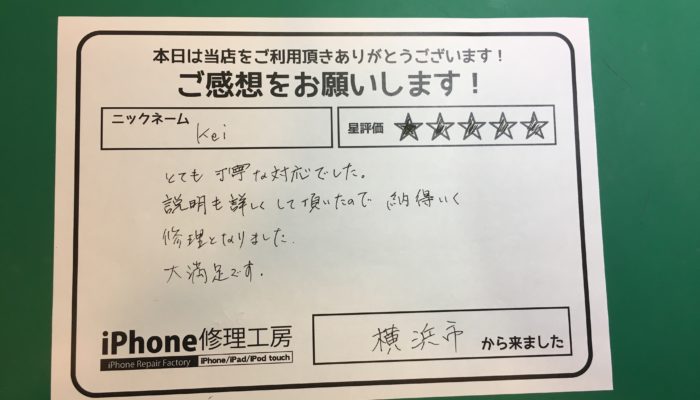 本日は当店をご利用頂きありがとうございます！
ご感想をお願いします！
ニックネーム
Kei
星評価
とても丁寧な対応でした。
説明も詳しくして頂いたので 納得いく
修理となりました.
大満足です.
iPhone修理工房
iPhone Repair Factory iPhone/iPad/iPod touch
横浜市 から来ました